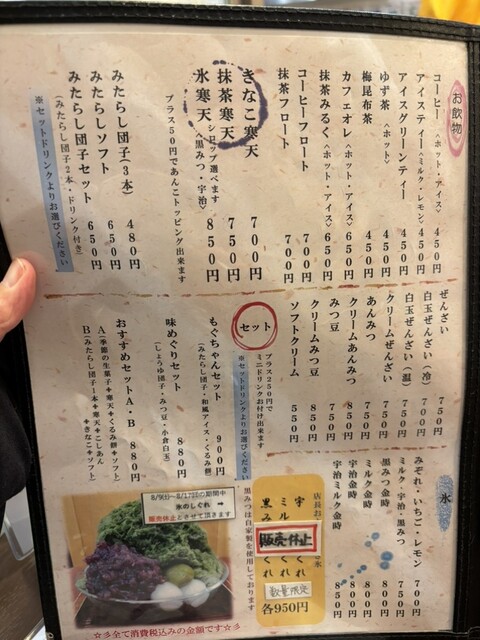 お飲物
コーヒー〈ホット・アイス〉 450円
アイスティー〈ミルク・レモン〉 450円
アイスグリーンティー 450円
ゆず茶〈ホット〉 450円
梅昆布茶 450円
カフェオレ〈ホット・アイス〉 650円
抹茶みるく〈ホット・アイス〉 650円
コーヒーフロート 700円
抹茶フロート 700円
きなこ寒天 700円
抹茶寒天 750円
氷寒天 シロップ選べます〈黒みつ・宇治〉 850円
プラス50円であんこトッピング出来ます
みたらし団子(3本) 480円
みたらしソフト 650円
みたらし団子セット 650円
(みたらし団子2本・ドリンク付き)
※セットドリンクよりお選びください
ぜんざい 750円
白玉ぜんざい(冷) 700円
白玉ぜんざい(温) 750円
クリームぜんざい
あんみつ 750円
クリームあんみつ 850円
みつ豆 750円
クリームみつ豆 850円
ソフトクリーム 550円
セット
プラス250円で
ミニドリンクお付け出来ます
※セットドリンクよりお選びください
もぐちゃんセット 900円
(みたらし団子・和風アイス・くるみ餅)
味めぐりセット 880円
(しょうゆ団子・みつ豆・小倉白玉)
おすすめセットA・B 880円
A(季節の生菓子+寒天+くるみ餅+ソフト)
B(みたらし団子1本+寒天+こしあん+きなこ+ソフト)
氷
みぞれ・いちご・レモン 700円
ミルク・宇治・黒みつ 750円
黒みつ金時 800円
ミルク金時 800円
宇治金時 800円
宇治ミルク金時 850円
店長お
氷
宇
ミル
黒み
販売休止
くれ
くれ
数量限定
各950円
黒みつは自家製を使用しております
8/9(土)~8/17(日)の期間中
氷のしぐれ
販売休止とさせて頂きます
☆彡全て消費税込みの金額です☆彡